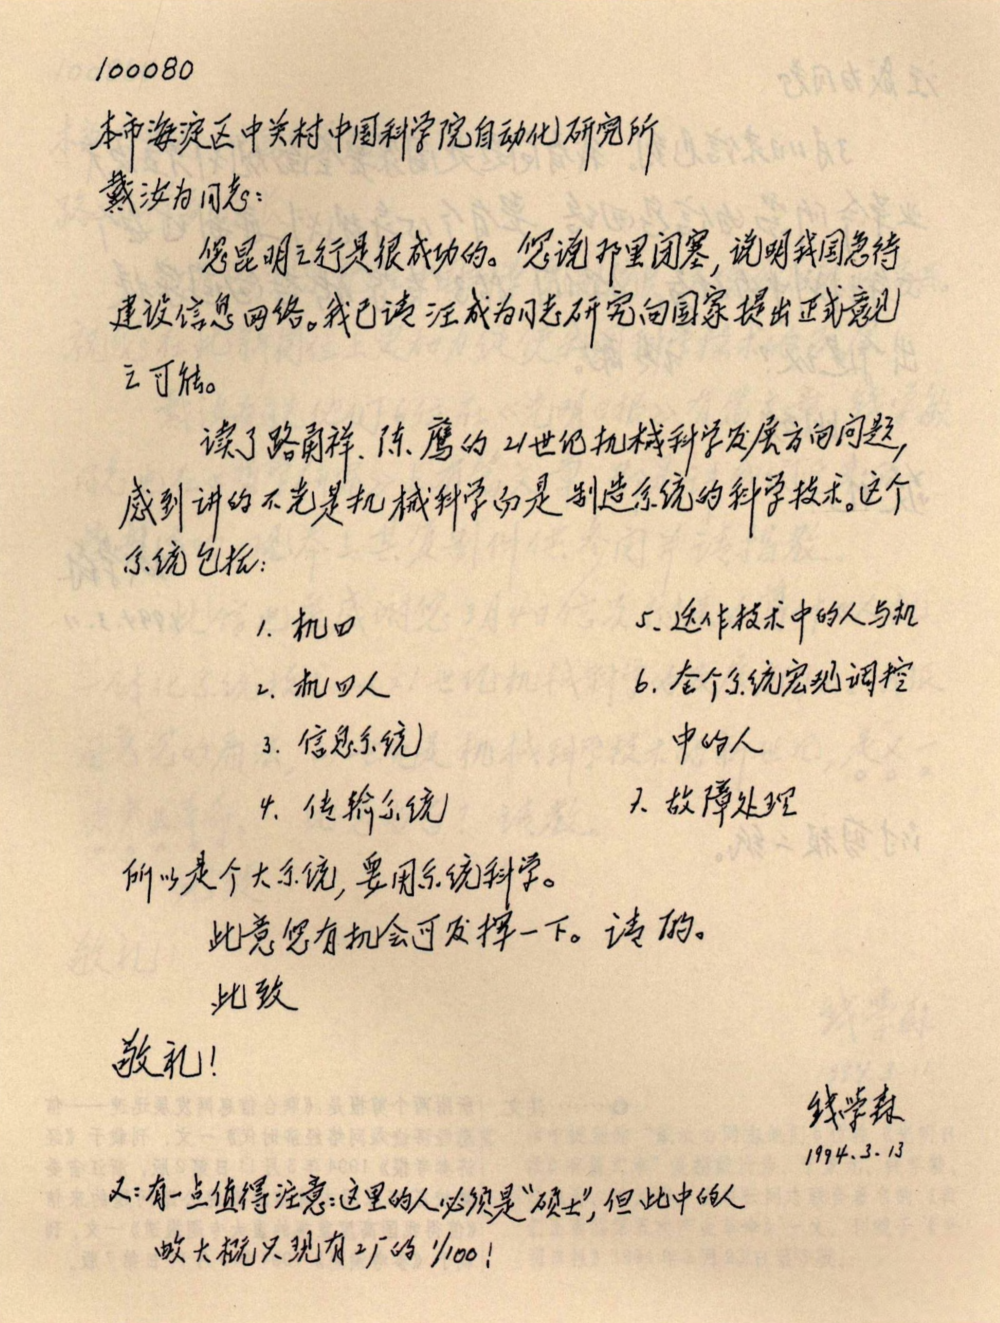 100080
本市海淀区中关村中国科学院自动化研究所
戴汝为同志:
您昆明之行是很成功的。您说那里闭塞,说明我国急待
建设信息网络。我已请汪成为同志研究向国家提出正式意见
之可能。
读了路甬祥、陈鹰的21世纪机械科学发展方向问题,
感到讲的不光是机械科学而是制造系统的科学技术。这个
系统包括:
1. 机四
2. 机四人
3. 信息系统
4. 传输系统
5. 迭作技术中的人与机
6. 全个系统宏观调控
中的人
7. 故障处理
所以是个大系统,要用系统科学。
此意您有机会可发挥一下。请酌。
此致
敬礼!
钱学森
1994.3.13
又:有一点值得注意:这里的人必须是“硕士”,但此中的人
数大概只现有工厂的1/100!